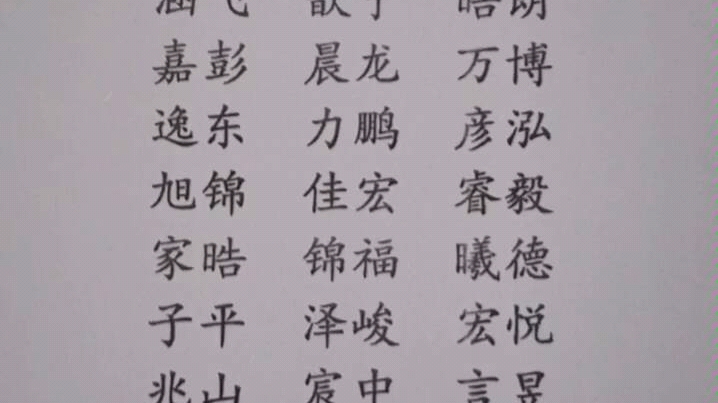 涵飞 歆宁 晧朗
嘉彭 晨龙 万博
逸东 力鹏 彦泓
旭锦 佳宏 睿毅
家晧 锦福 曦德
子平 泽峻 宏悦
兆山 宸中 言昱